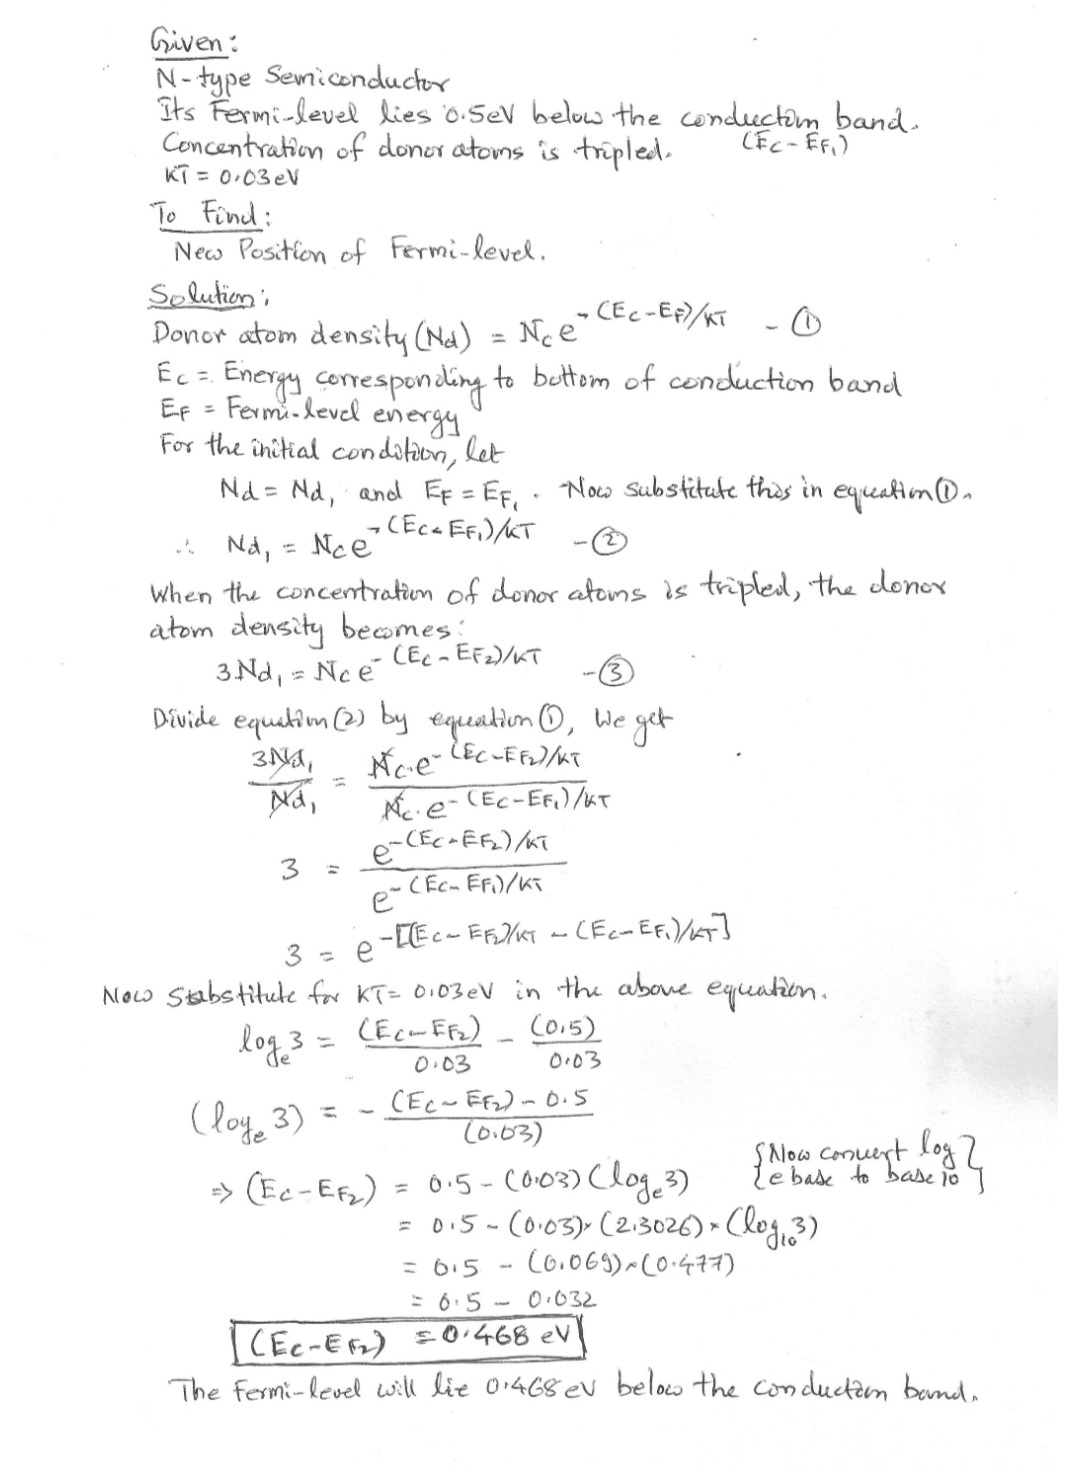 Given:
N-type Semiconductor
Its Fermi-level lies 0.5eV below the conduction band.
(Ec-EF1)
Concentration of donor atoms is tripled.
KT = 0.03eV
To Find:
New Position of Fermi-level.
Solution:
Donor atom density (Nd) = Nc e^-(Ec-EF)/KT - ①
Ec = Energy corresponding to bottom of conduction band
EF = Fermi-level energy
For the initial condition, let
Nd = Nd1 and EF = EF1. Now substitute this in equation ①.
∴ Nd1 = Nc e^-(Ec-EF1)/KT - ②
When the concentration of donor atoms is tripled, the donor
atom density becomes:
3Nd1 = Nc e^-(Ec-EF2)/KT - ③
Divide equation (2) by equation ①, We get
3Nd1/Nd1 = Nc.e^-(Ec-EF2)/KT / Nc.e^-(Ec-EF1)/KT
3 = e^-(Ec-EF2)/KT / e^-(Ec-EF1)/KT
3 = e^-[(Ec-EF2)/KT - (Ec-EF1)/KT]
Now Substitute for KT= 0.03eV in the above equation.
loge3 = (Ec-EF2)/0.03 - (0.5)/0.03
(loge 3) = - (Ec-EF2)-0.5/(0.03)
⇒ (Ec-EF2) = 0.5-(0.03)(loge3) {Now convert log
e base to base 10}
= 0.5-(0.03)×(2.3026)×(log10 3)
= 0.5 - (0.069)×(0.477)
= 0.5 - 0.032
(Ec-EF2) = 0.468 eV
The Fermi-level will lie 0.468eV below the conduction band.